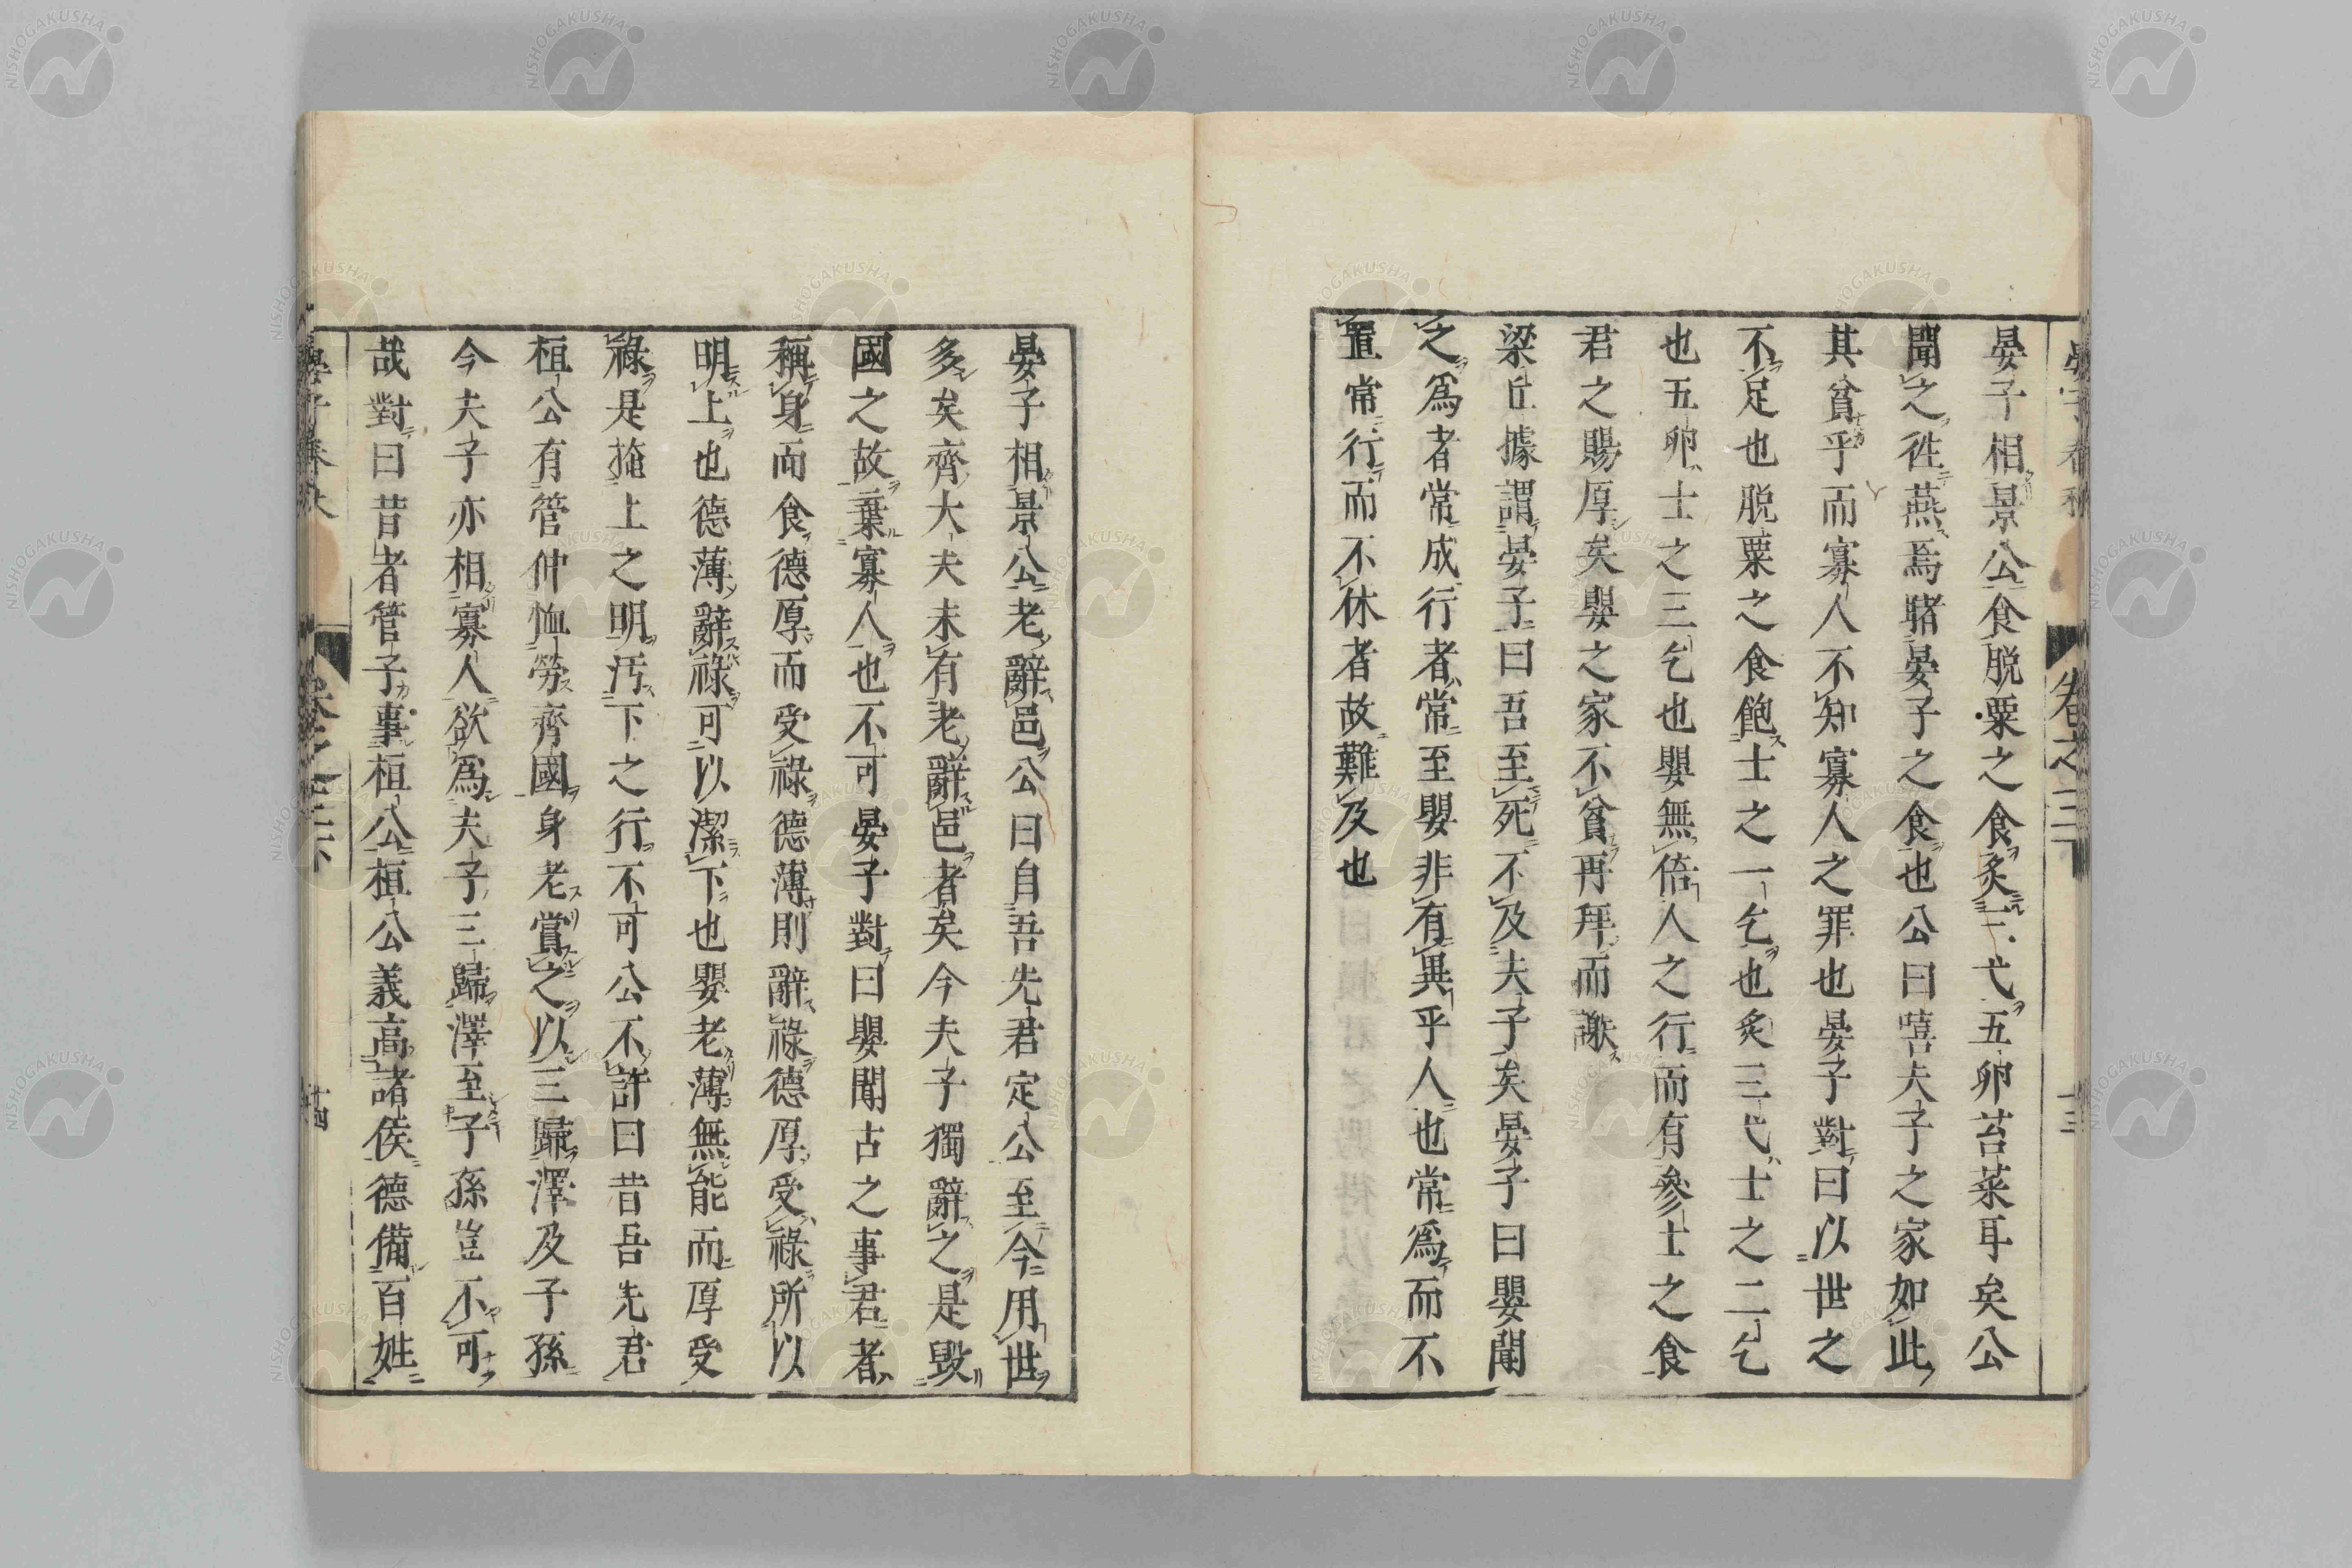 晏子相景公食脱粟之食炙三弋五卵苔菜耳矣公
聞之徃燕焉睹晏子之食也公曰嘻夫子之家如此
其貧乎而寡人不知寡人之罪也晏子對曰以世之
不足也脱粟之食飽士之一乞也炙三弋士之二乞
也五卵士之三乞也嬰無倍人之行而有參士之食
君之賜厚矣嬰之家不貧再拜而謝
梁丘據謂晏子曰吾至死不及夫子矣晏子曰嬰聞
之爲者常成行者常至嬰非有異乎人也常爲而不
置常行而不休者故難及也
晏子相景公老辭邑公曰自吾先君定公至今用世
多矣齊大夫未有老辭邑者矣今夫子獨辭之是毀
國之故棄寡人也不可晏子對曰嬰聞古之事君者
稱身而食德厚而受祿德薄則辭祿德厚受祿所以
明上也德薄辭祿可以潔下也嬰老薄無能而厚受
祿是掩上之明汚下之行不可公不許曰昔吾先君
桓公有管仲恤勞齊國身老賞之以三歸澤及子孫
今夫子亦相寡人欲爲夫子三歸澤至子孫豈不可
哉對曰昔者管子事桓公桓公義高諸侯德備百姓